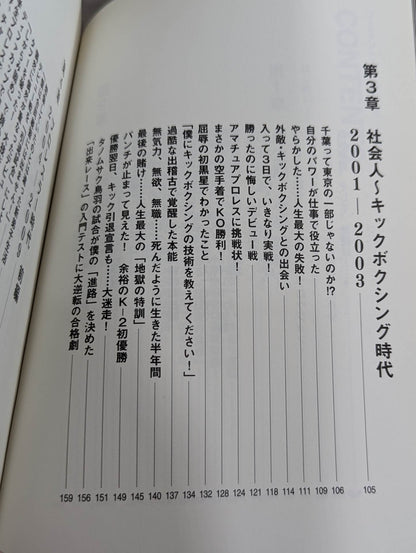 第3章 社会人〜キックボクシング時代
2001―2003 105
千葉って東京の一部じゃないのか!? 106
自分のパワーが仕事で役立った 109
やらかした……人生最大の失敗! 111
外敵・キックボクシングとの出会い 114
入って3日で、いきなり実戦! 118
勝ったのに悔しいデビュー戦 121
アマチュアプロレスに挑戦状! 124
まさかの空手着でKO勝利! 128
屈辱の初黒星でわかったこと 132
「僕にキックボクシングの技術を教えてください!」 134
過酷な出稽古で覚醒した本能 137
無気力、無欲、無職……死んだように生きた半年間 140
最後の賭け……人生最大の「地獄の特訓」 145
パンチが止まって見えた! 余裕のK-2初優勝 149
優勝翌日、キック引退宣言も……大迷走! 151
タノムサク鳥羽の試合が僕の「進路」を決めた 156
「出来レース」の入門テストに大逆転の合格劇 159